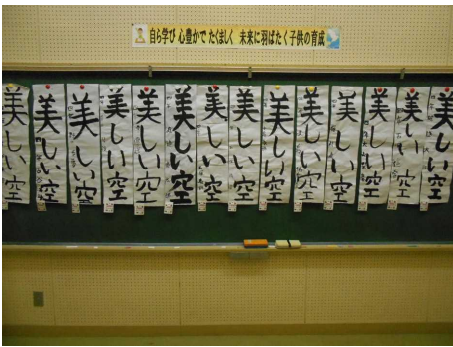 自ら学び 心豊かで たくましく 未来に羽ばたく子供の育成
美しい空
美しい空
美しい空
美しい空
美しい空
美しい空
美しい空
美しい空
美しい空
美しい空
美しい空
美しい空
美しい空
美しい空